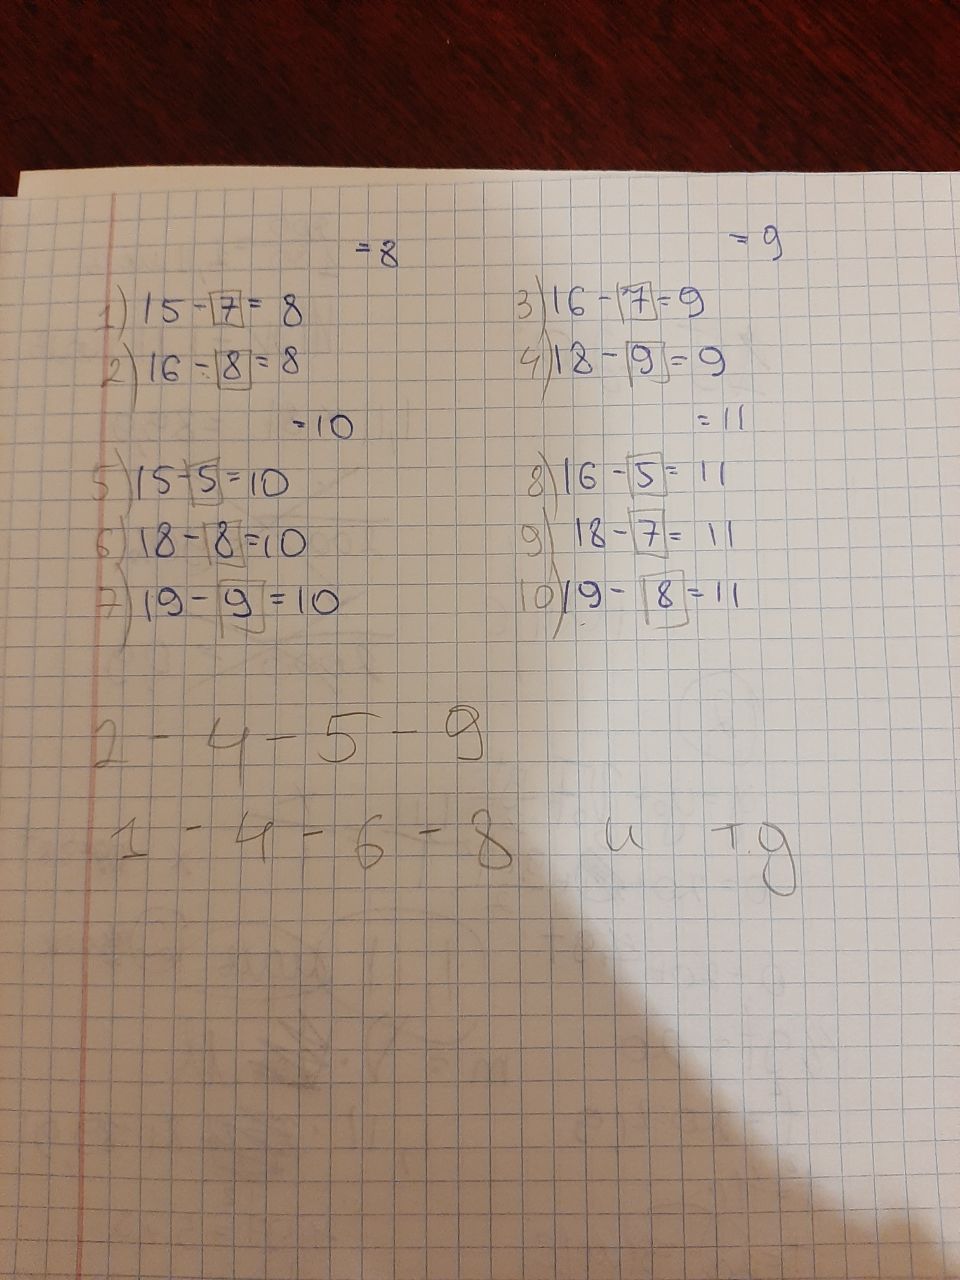 = 8 = 9
1) 15 - 7 = 8 3) 16 - 7 = 9
2) 16 - 8 = 8 4) 18 - 9 = 9
= 10 = 11
5) 15 - 5 = 10 8) 16 - 5 = 11
6) 18 - 8 = 10 9) 18 - 7 = 11
7) 19 - 9 = 10 10) 19 - 8 = 11
2 - 4 - 5 - 9
1 - 4 - 6 - 8 и т.д